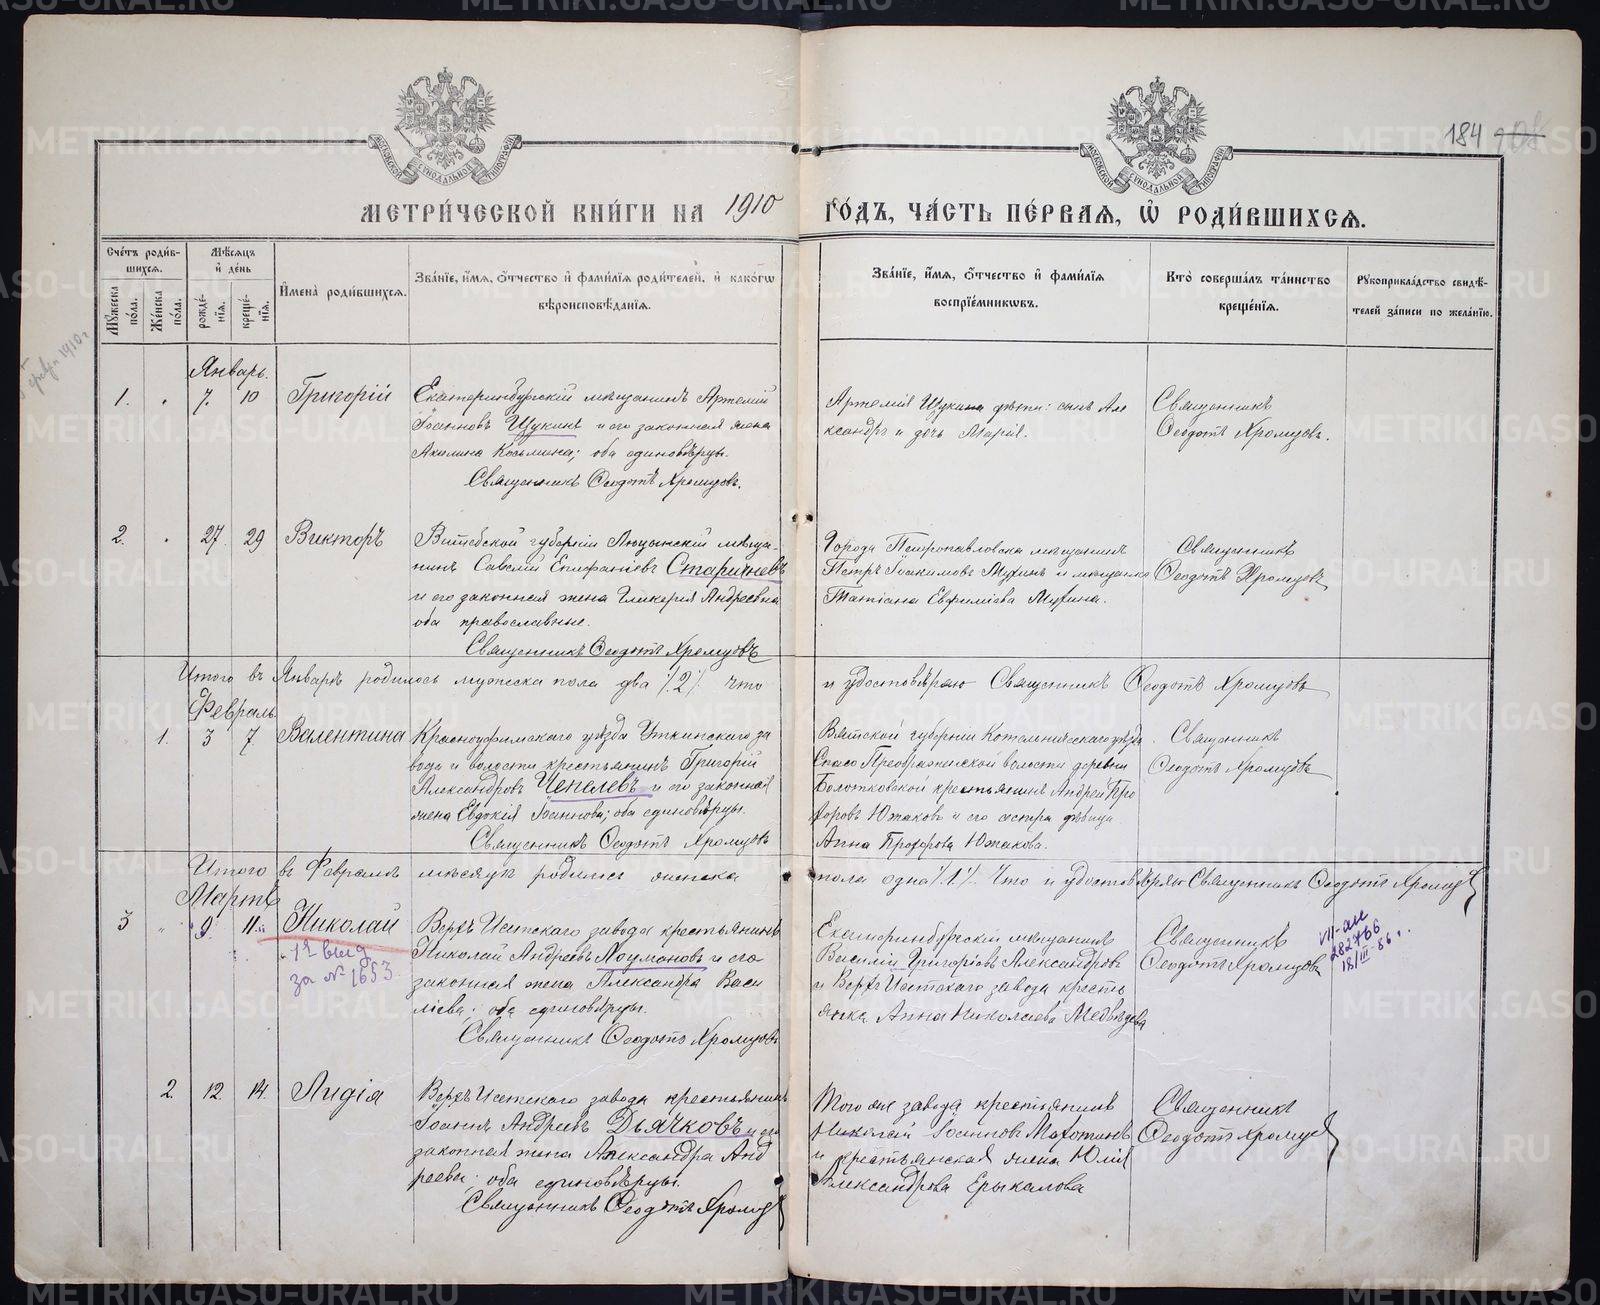 184 908
МЕТРИ́ЧЕСКОЙ КНИ́ГИ НА 1910 ГО́ДЪ, ЧА́СТЬ ПЕ́РВАѦ, Ѽ РОДИ́ВШИХСѦ.
Сче́тъ роди́в-
шихсѧ.
Мѣ́сѧцъ
и҆ де́нь
Мꙋ́жеска по́ла.
Же́нска по́ла.
рожде́-
нїѧ.
креще́-
нїѧ.
И҆мена̀ роди́вшихсѧ.
Зва́нїе, и҆́мѧ, ѻ҆́тчество и҆ фами́лїѧ роди́телей, и҆ како́гѡ
вѣроисповѣ́данїѧ.
Зва́нїе, и҆́мѧ, ѻ҆́тчество и҆ фами́лїѧ
воспрїе́мникѡвъ.
Кто̀ соверша́лъ та́инство
креще́нїѧ.
Рꙋкоприкла́дство свидѣ́-
телей за́писи по жела́нїю.
Январь.
1. " 7. 10 Григорій
Екатеринбургскій мѣщанинъ Артемій
Іоанновъ Щукинъ и его законная жена
Акилина Козьмина; оба единовѣрцы.
Священникъ Ѳеодотъ Хромцовъ.
Артемія Щукина дѣти: сынъ Але
ксандръ и дочь Марія.
Священникъ
Ѳеодотъ Хромцовъ.
2. " 27. 29 Викторъ
Витебской губерніи Люцынскій мѣща-
нинъ Савелій Епифаніевъ Старичневъ
и его законная жена Гликерія Андреевна
оба православные.
Священникъ Ѳеодотъ Хромцовъ
Города Петропавловска мѣщанинъ
Петръ Іоакимовъ Мухинъ и мѣщанка
Татіана Евфиміева Мухина.
Священникъ
Ѳеодотъ Хромцовъ
Итого въ Январѣ родилось мужеска пола два /.2/. что
и удостовѣряю Священникъ Ѳеодотъ Хромцовъ
Февраль
1. 3 7. Валентина
Красноуфимскаго уѣзда Уткинскаго за
вода и волости крестьянинъ Григорій
Александровъ Чепелевъ и его законная
жена Евдокія Іоаннова; оба единовѣрцы.
Священникъ Ѳеодотъ Хромцовъ
Вятской губерніи Котельническаго уѣзда
Спасо Преображенской волости деревни
Болотковской крестьянинъ Андрей Про
хоровъ Южаковъ и его сестра дѣвица
Анна Прохорова Южакова.
Священникъ
Ѳеодотъ Хромцовъ
Итого въ Февралѣ мѣсяцѣ родилась женска
пола одна /.1/. Что и удостовѣряю Священникъ Ѳеодотъ Хромцовъ
Мартъ
3 " 9. 11. Николай
1е выд
за № 1653
Верхъ Исетскаго завода крестьянинъ
Николай Андреевъ Лоумановъ и его
законная жена Александра Васи
ліева; оба единовѣрцы.
Священникъ Ѳеодотъ Хромцовъ
Екатеринбургскій мѣщанинъ
Василій Григоріевъ Александровъ
и Верхъ Исетскаго завода кресть
янка Анна Николаева Медвѣдева
Священникъ
Ѳеодотъ Хромцовъ
VII-аи
282766
18/III-86 г.
2. 12. 14. Лидія
Верхъ Исетскаго завода крестьянинъ
Іоаннъ Андреевъ Дьячковъ и его
законная жена Александра Анд
реева; оба единовѣрцы.
Священникъ Ѳеодотъ Хромцовъ
Того же завода крестьянинъ
Николай Іоанновъ Махотинъ
и крестьянская жена Юлія
Александрова Ерыкалова
Священникъ
Ѳеодотъ Хромцовъ